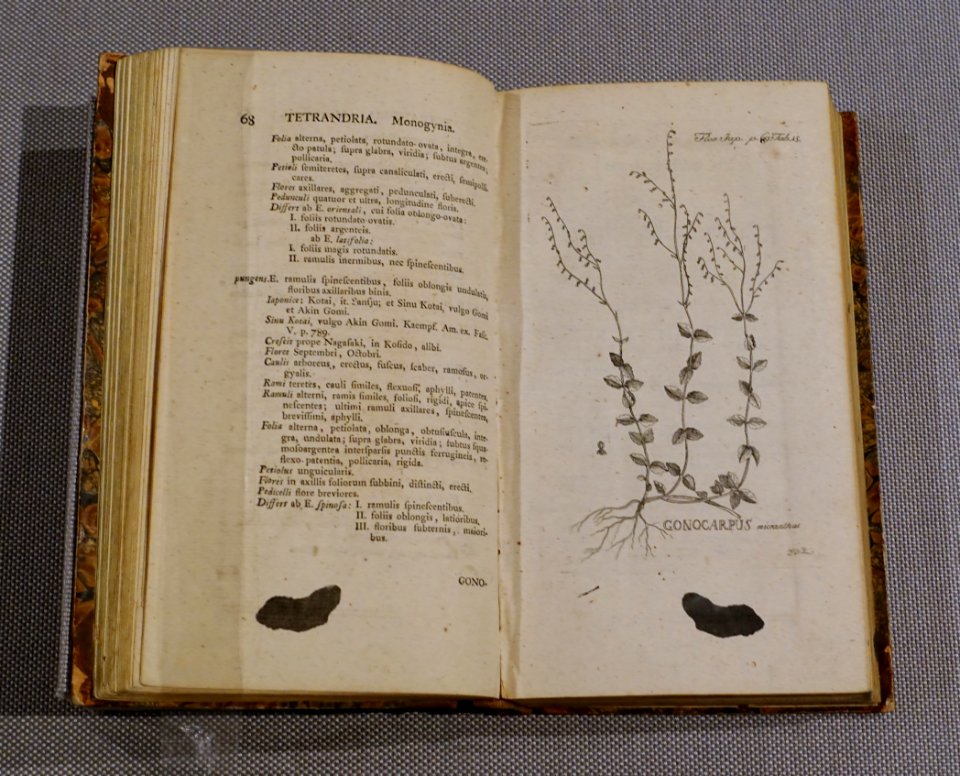 68 TETRANDRIA. Monogynia.
Folia alterna, petiolata, rotundato-ovata, integra, ere-
cto patula; supra glabra, viridia; subtus argentea;
pollicaria.
Petioli semiteretes, supra canaliculati, erecti, semipolli-
cares.
Flores axillares, aggregati, pedunculati, suberecti.
Pedunculi quatuor et ultra, longitudine floris.
Differt ab E. orientali, cui folia oblongo-ovata:
I. foliis rotundato ovatis.
II. foliis argenteis.
ab E. latifolia:
I. foliis magis rotundatis.
II. ramulis inermibus, nec ſpineſcentibus.
pungens. E. ramulis ſpineſcentibus, foliis oblongis undulatis,
floribus axillaribus binis.
Iaponice: Kotai, it. et Sinu Kotai, vulgo Gomi
et Akin Gomi.
Sinu Kotai, vulgo Akin Gomi. Kaempf. Am. ex. Faſc.
V. p. 789.
Creſcit prope Nagaſaki, in Koſido, alibi.
Floret Septembri, Octobri.
Caulis arboreus, erectus, fuſcus, ſcaber, ramoſus, or-
gyalis.
Rami teretes, cauli ſimiles, flexuoſi, aphylli, patentes.
Ramuli alterni, ramis ſimiles, folioſi, rigidi, apice ſpi-
neſcentes; ultimi ramuli axillares, ſpineſcentes,
breviſſimi, aphylli.
Folia alterna, petiolata, oblonga, obtuſiuſcula, inte-
gra, undulata; ſupra glabra, viridia; ſubtus ſqua-
moſoargentea interſparſis punctis ferrugineis, re-
flexo-patentia, pollicaria, rigida.
Petiolus unguicularis.
Flores in axillis foliorum ſubbini, diſtincti, erecti.
Pedicelli flore breviores.
Differt ab E. ſpinoſa: I. ramulis ſpineſcentibus.
II. foliis oblongis, latioribus.
III. floribus ſubternis, maiori-
bus.
GONO-
Flor. Jap. p.
GONOCARPUS micranthus